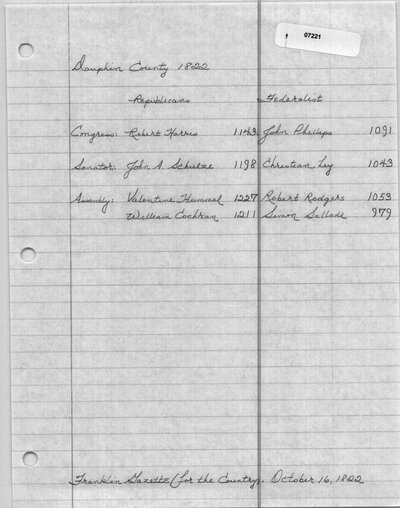 07221
Dauphin County 1822
Republicans Federalist
Congress: Robert Harris 1143 John Phillips 1091
Senator: John A. Schulze 1198 Christian Ley 1043
Assembly: Valentine Hummel 1227 Robert Rodgers 1053
William Cochran 1211 Simon Sallade 979
Franklin Gazette (for the Country). October 16, 1822